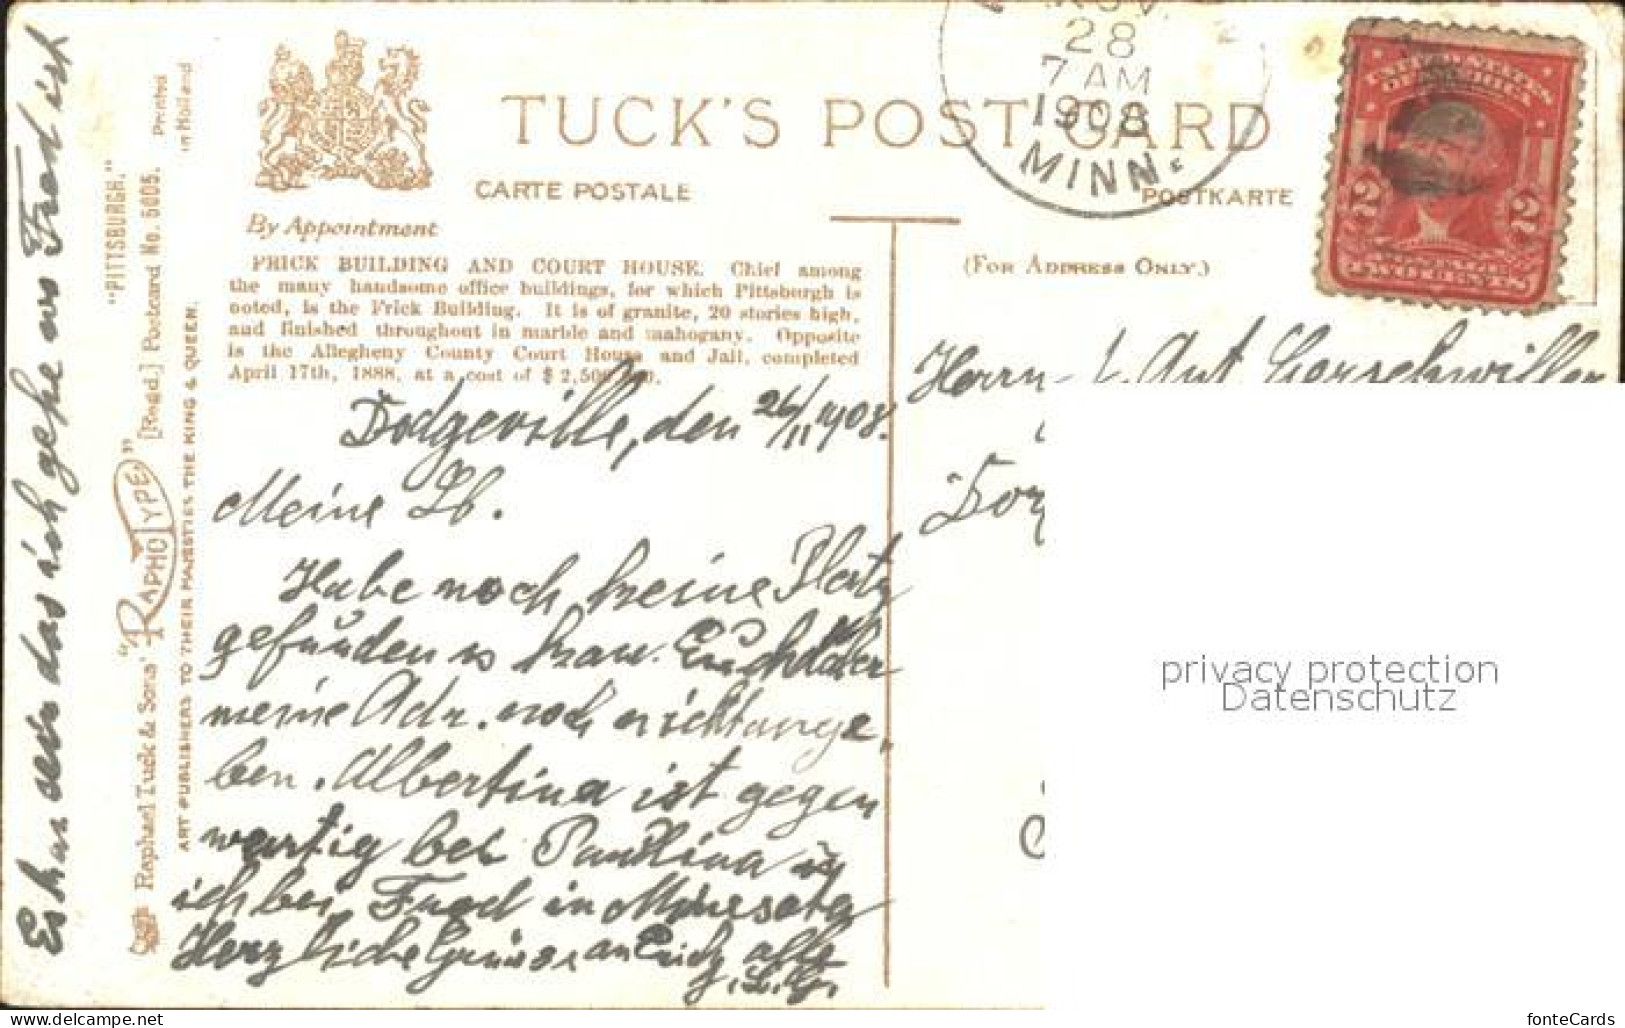 TUCK'S POST CARD
CARTE POSTALE
POSTKARTE
By Appointment
(FOR ADDRESS ONLY.)
FRICK BUILDING AND COURT HOUSE. Chief among
the many handsome office buildings, for which Pittsburgh is
noted, is the Frick Building. It is of granite, 20 stories high,
and finished throughout in marble and mahogany. Opposite
is the Allegheny County Court House and Jail, completed
April 17th, 1888, at a cost of $ 2,500
28
7 AM
1908
MINN.
UNITED STATES
OF AMERICA
2 2
TWO CENTS
Dodgeville, den 26/11 1908.
Meine Lb.
Habe noch keine Platz
gefunden kan Euch daher
meine Adr. noch nicht ange
ben. Albertina ist gegen
wertig bei Paulina
ich bei Fred in Minesota
Herzliche Grüsse an Euch alle
Herrn
Es kan sein das ich gehe wo Fred ist
"PITTSBURGH."
Raphael Tuck & Sons' "RAPHOTYPE" [Regd.] Postcard No. 5005. Printed
in Holland
ART PUBLISHERS TO THEIR MAJESTIES THE KING & QUEEN.
privacy protection
Datenschutz
www.delcampe.net
fonteCards